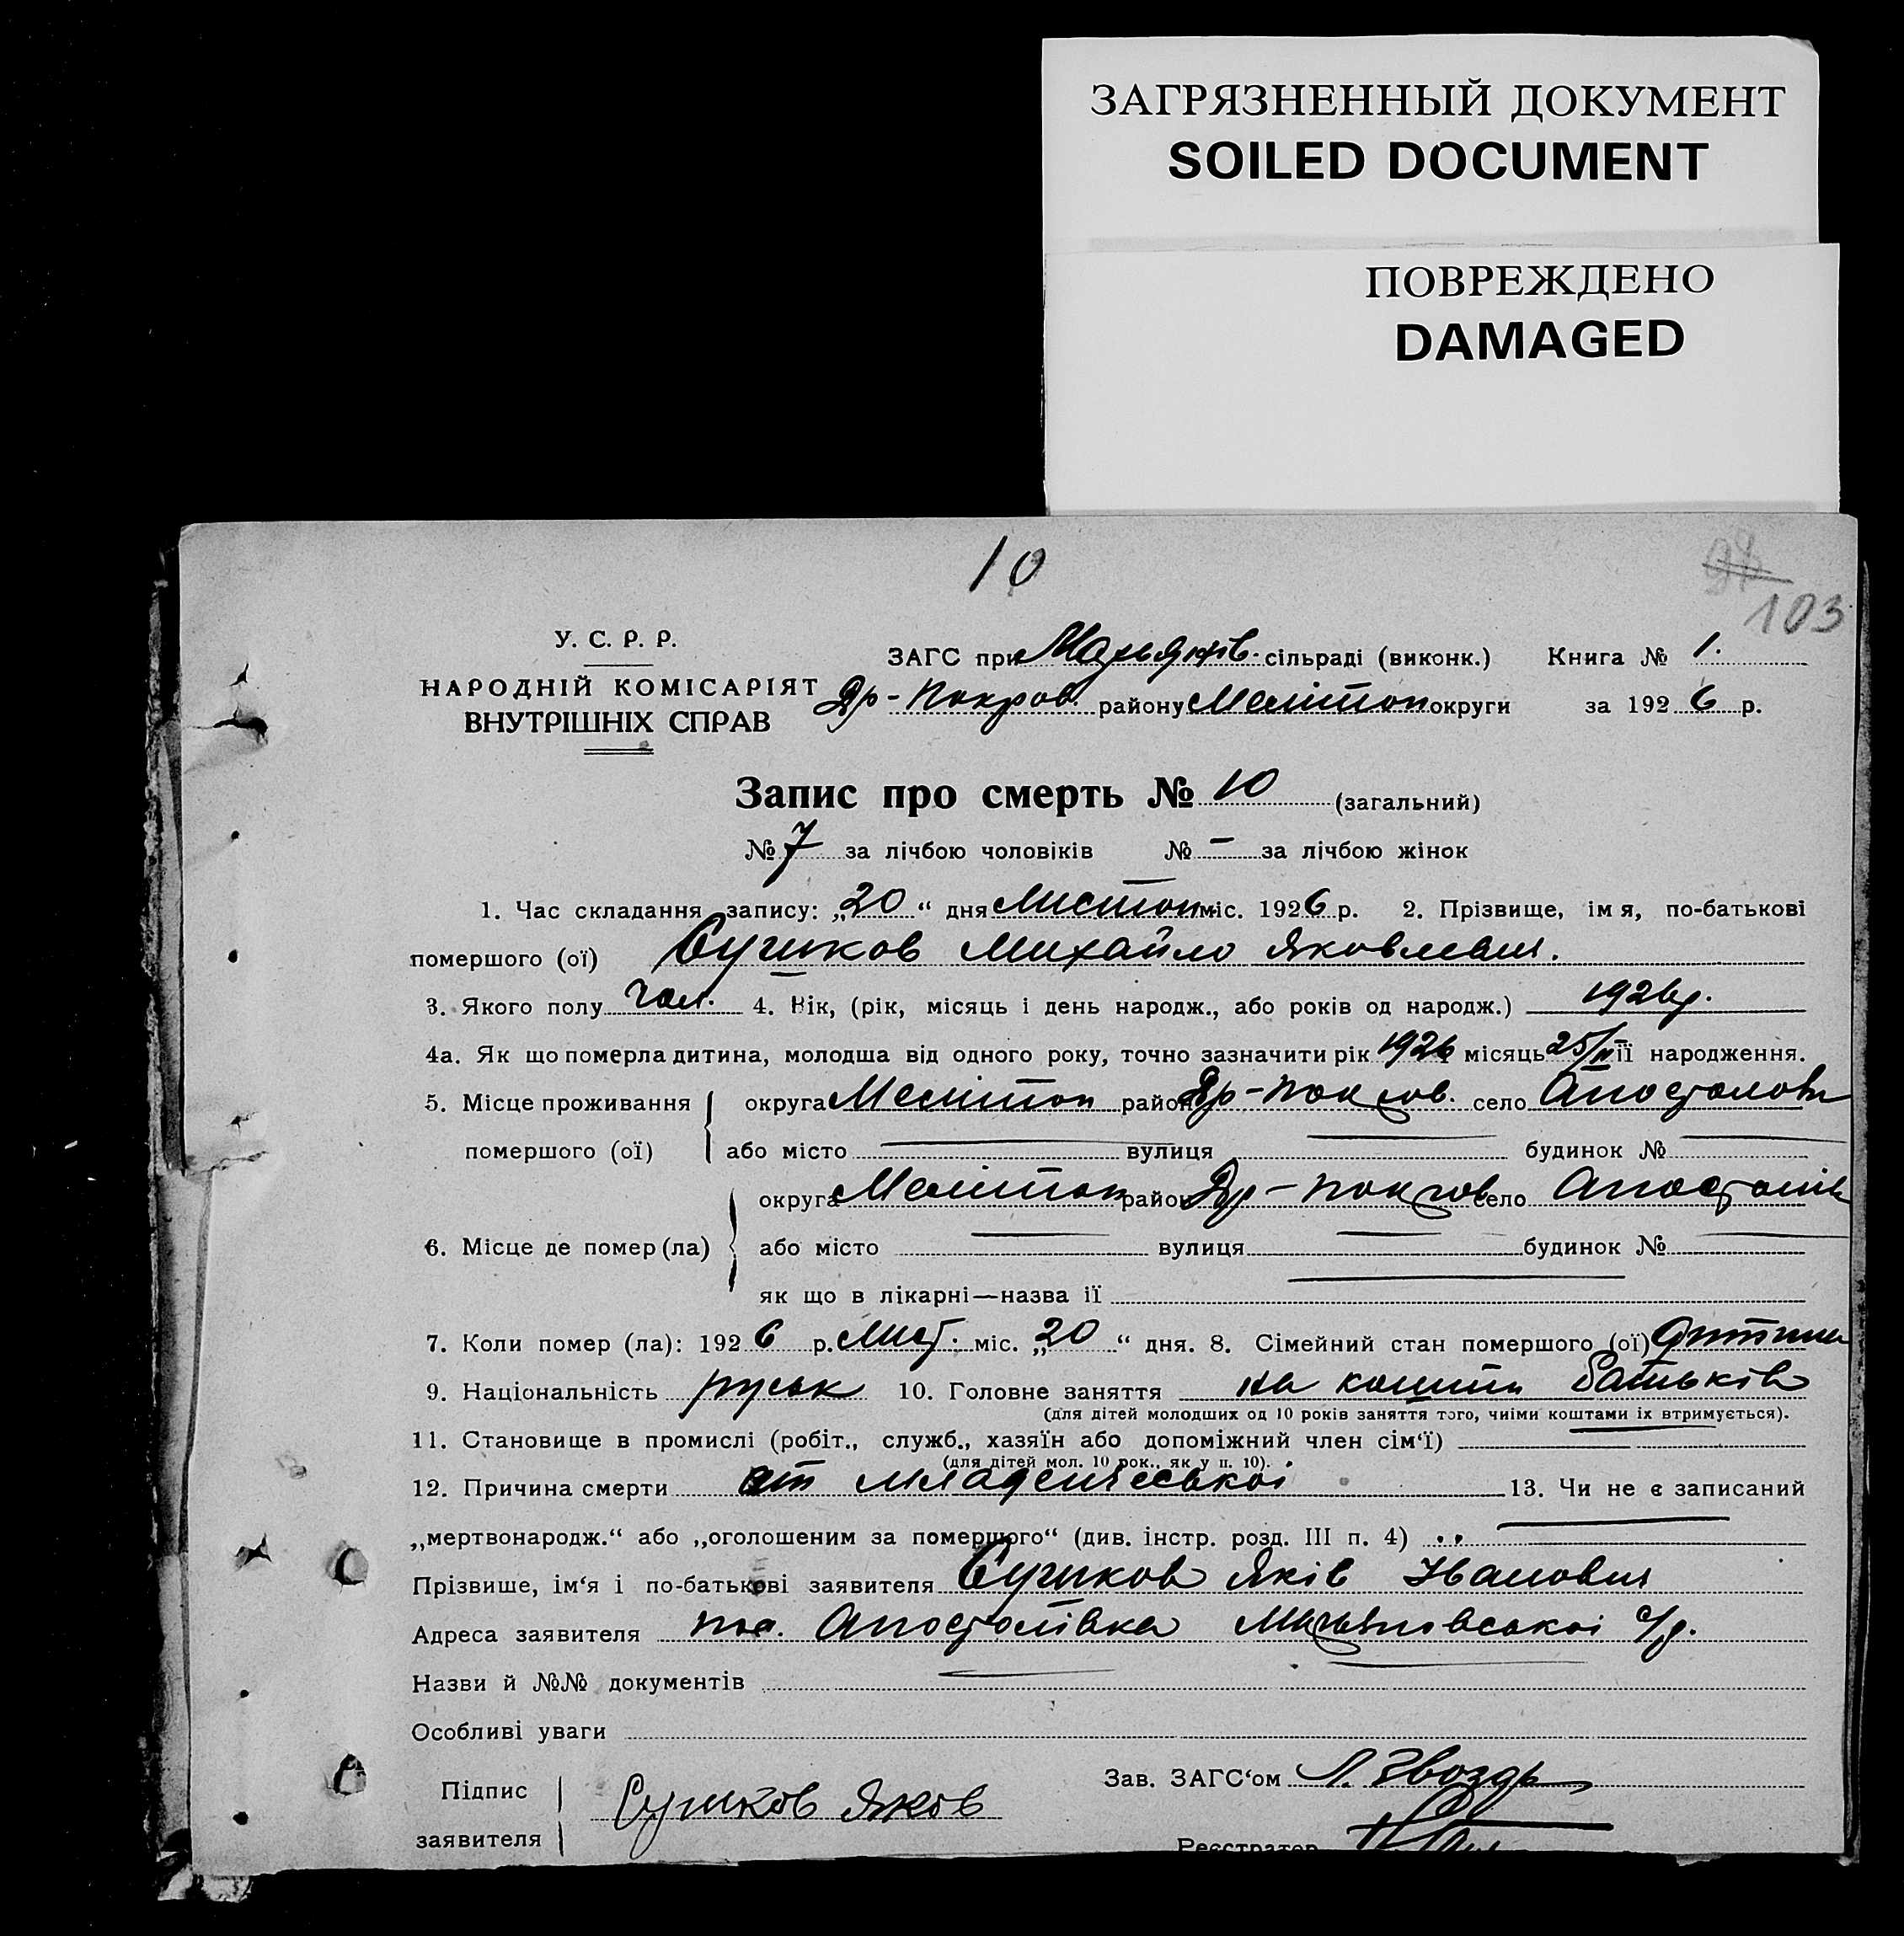 ЗАГРЯЗНЕННЫЙ ДОКУМЕНТ
SOILED DOCUMENT
ПОВРЕЖДЕНО
DAMAGED
10
103
У. С. Р. Р.
НАРОДНІЙ КОМІСАРІЯТ
ВНУТРІШНІХ СПРАВ
ЗАГС при сільраді (виконк.) Книга № 1.
Др-Покров. району Меліттоп округи за 1926 р.
Запис про смерть № 10 (загальний)
№ 7 за лічбою чоловіків № — за лічбою жінок
1. Час складання запису: „20“ дня Листоп. міс. 1926 р. 2. Прізвище, імя, по-батькові
помершого (ої) Михайло Яковлевич.
3. Якого полу чол. 4. Вік, (рік, місяць і день народж., або років од народж.) 1926р.
4а. Як що померла дитина, молодша від одного року, точно зазначити рік 1926 місяць 25/ її народження.
5. Місце проживання округа Меліттоп район Др-Покров. село
помершого (ої) або місто — вулиця — будинок № —
округа Меліттоп район Др-Покров село
6. Місце де помер (ла) або місто — вулиця — будинок № —
як що в лікарні—назва її —
7. Коли помер (ла): 1926 р. Лист. міс. „20“ дня. 8. Сімейний стан помершого (ої) дитина
9. Національність руськ 10. Головне заняття на кошти батьків
(для дітей молодших од 10 років заняття того, чиїми коштами їх втримується).
11. Становище в промислі (робіт., служб., хазяїн або допоміжний член сім‘ї) —
(для дітей мол. 10 рок., як у п. 10).
12. Причина смерти от младенческої 13. Чи не є записаний
„мертвонародж.“ або „оголошеним за помершого“ (див. інстр. розд. III п. 4) —
Прізвище, ім‘я і по-батькові заявителя Яків Іванович
Адреса заявителя пос. Апостолівка с/р.
Назви й №№ документів —
Особливі уваги
Підпис
заявителя Яков
Зав. ЗАГС‘ом Л. Гвоздь
Реєстратор